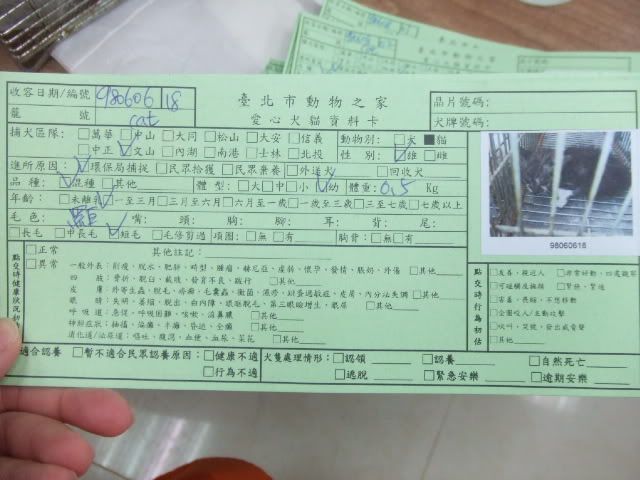 收容日期/編號 980606 18
臺北市動物之家
晶片號碼:
籠 號 cat
愛心犬貓資料卡
犬牌號碼:
捕犬區隊: □萬華 □中山 □大同 □松山 □大安 □信義 動物別: □犬 ■貓
□中正 ☑文山 □內湖 □南港 □士林 □北投 性別: ☑雄 □雌
進所原因: ☑環保局捕捉 □民眾拾獲 □民眾棄養 □外送犬 □回收犬
品 種: ☑混種 □其他 體 型: □大 □中 □小 ☑幼 體重: 0.5 Kg
年齡: □未離乳 ☑一至三月 □三月至六月 □六月至一歲 □一歲至三歲 □三至七歲 □七歲以上
毛 色: 嘴: 頭: 胸: 腳: 耳: 背: 尾:
□長毛 □中長毛 ☑短毛 □毛修剪過 項圈: □無 □有 胸背: □無 □有
98060618
點交時健康狀況初評
□正常
其他註記:
□異常
一般外表: 削瘦、脫水、肥胖、畸型、腫瘤、赫尼亞、虛弱、懷孕、發情、脹奶、外傷 □其他
四 肢: 骨折、脫臼、截肢、發育不良、跛行 □其他
皮 膚: 外寄生蟲、脫毛、疥癬、毛囊蟲、黴菌、濕疹、跳蚤過敏症、皮屑、內分泌失調 □其他
眼 睛: 失明、萎縮、脫出、白內障、眼瞼脫毛、第三眼瞼增生、眼屎 □其他
呼 吸 道: 急促、呼吸困難、咳嗽、流鼻膿 □其他
神經症狀: 抽搐、癲癇、半癱、昏迷、全癱 □其他
消化道/泌尿道: 嘔吐、腹瀉、血便、血尿、呆花 □其他
點交時行為初估
□友善、親近人 □非常好動、四處觀望
□可碰觸及撫摸 □緊張、緊迫
□害羞、畏縮、不想移動
□企圖咬人/主動攻擊
□吠叫、哭號、發出威脅聲
□其他
適合認養 □暫不適合民眾認養原因: □健康不適 犬隻處理情形: □認領 □認養 □自然死亡
□行為不適 □逃脫 □緊急安樂 □逾期安樂